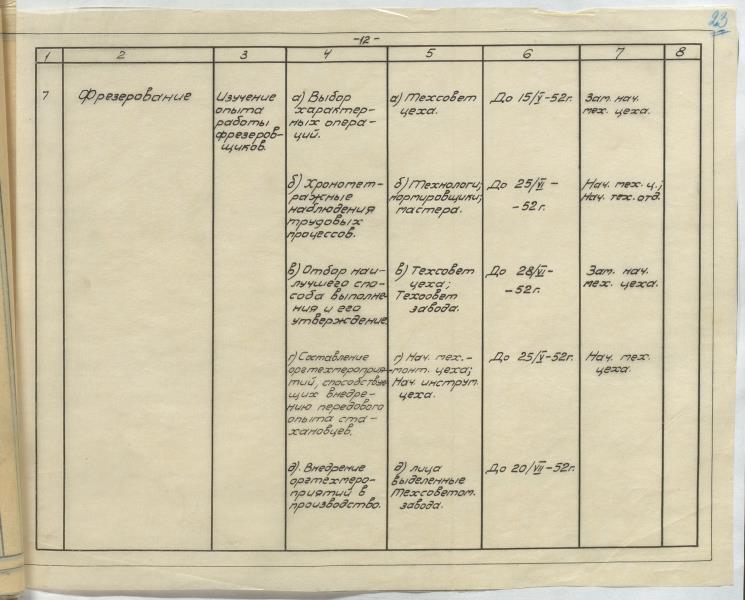 23
-12-
1 2 3 4 5 6 7 8
7 Фрезерование
Изучение
опыта
работы
фрезеров-
щиков.
а) Выбор
характер-
ных опера-
ций.
а) Техсовет
цеха.
До 15/V-52г.
Зам. нач.
мех. цеха.
б) Хрономет-
ражные
наблюдения
трудовых
процессов.
б) Технологи;
нормировщики;
мастера.
До 25/VI-
-52г.
Нач. мех. ц.;
Нач. тех. отд.
в) Отбор наи-
лучшего спо-
соба выполне-
ния и его
утверждение.
в) Техсовет
цеха;
Техсовет
завода.
До 28/VI-
-52г.
Зам. нач.
мех. цеха.
г) Составление
оргтехмероприя-
тий, способствую-
щих внедре-
нию передового
опыта ста-
хановцев.
г) Нач. мех.-
монт. цеха;
Нач. инструм.
цеха.
До 25/V-52г.
Нач. мех.
цеха.
д). Внедрение
оргтехмеро-
приятий в
производство.
д) лица
выделенные
Техсоветом
завода.
До 20/VII-52г.